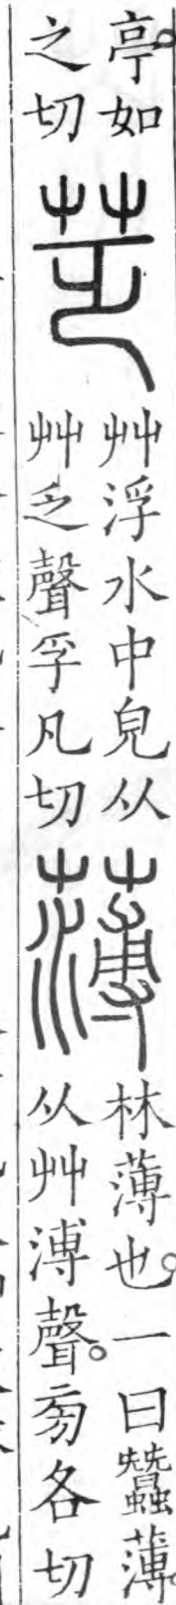 亭。如
之切
芝
艸浮水中皃从
艸乏聲孚凡切
薄
林薄也。一曰蠶薄。
从艸溥聲。㫄各切